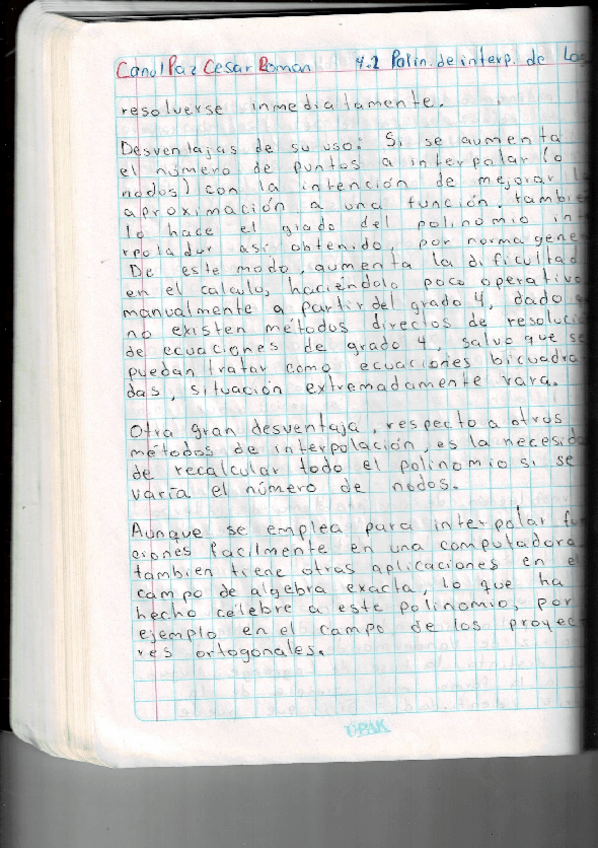 Canul Paz Cesar Román 4.2 Polin. de interp. de
resolverse inmediatamente.
Desventajas de su uso: Si se aumenta
el número de puntos a interpolar (o
nodos) con la intención de mejorar
aproximación a una función, tambié
lo hace el grado del polinomio int
rpolador así obtenido, por norma gene
De este modo, aumenta la dificultad
en el calculo, haciéndolo poco operativo
manualmente a partir del grado 4, dado
no existen métodos directos de resoluci
de ecuaciones de grado 4, salvo que se
puedan tratar como ecuaciones bicuadra
das, situación extremadamente rara.
Otra gran desventaja, respecto a otros
métodos de interpolación, es la necesid
de recalcular todo el polinomio si se
varía el número de nodos.
Aunque se emplea para interpolar fun
ciones facilmente en una computadora
tambien tiene otras aplicaciones en el
campo de algebra exacta, lo que ha
hecho célebre a este polinomio, por
ejemplo en el campo de los proyec
res ortogonales.
ÚPAK